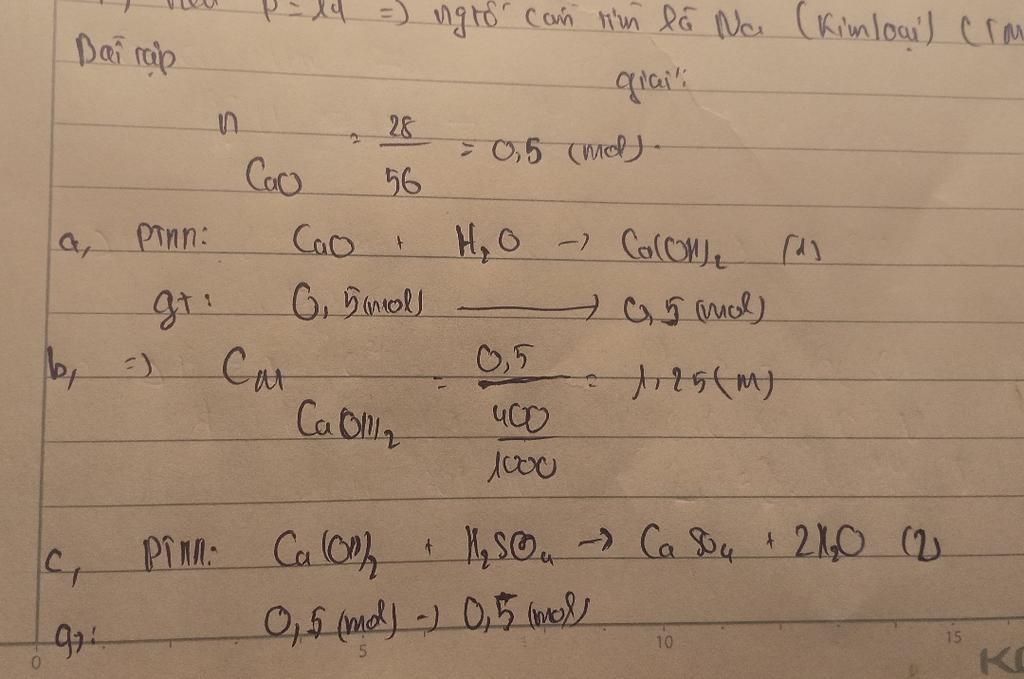 p = 11 => ngtố cần tìm là Na (Kim loại) (TM
Bài tập
giải:
n CaO = 28/56 = 0,5 (mol).
a, PTPƯ: CaO + H₂O -> Ca(OH)₂ (1)
gt: 0,5 (mol) → 0,5 (mol)
b, => CM Ca(OH)₂ = 0,5/(400/1000) = 1,25 (M)
c, PTPƯ: Ca(OH)₂ + H₂SO₄ -> CaSO₄ + 2H₂O (2)
gt: 0,5 (mol) -> 0,5 (mol)
0 5 10 15